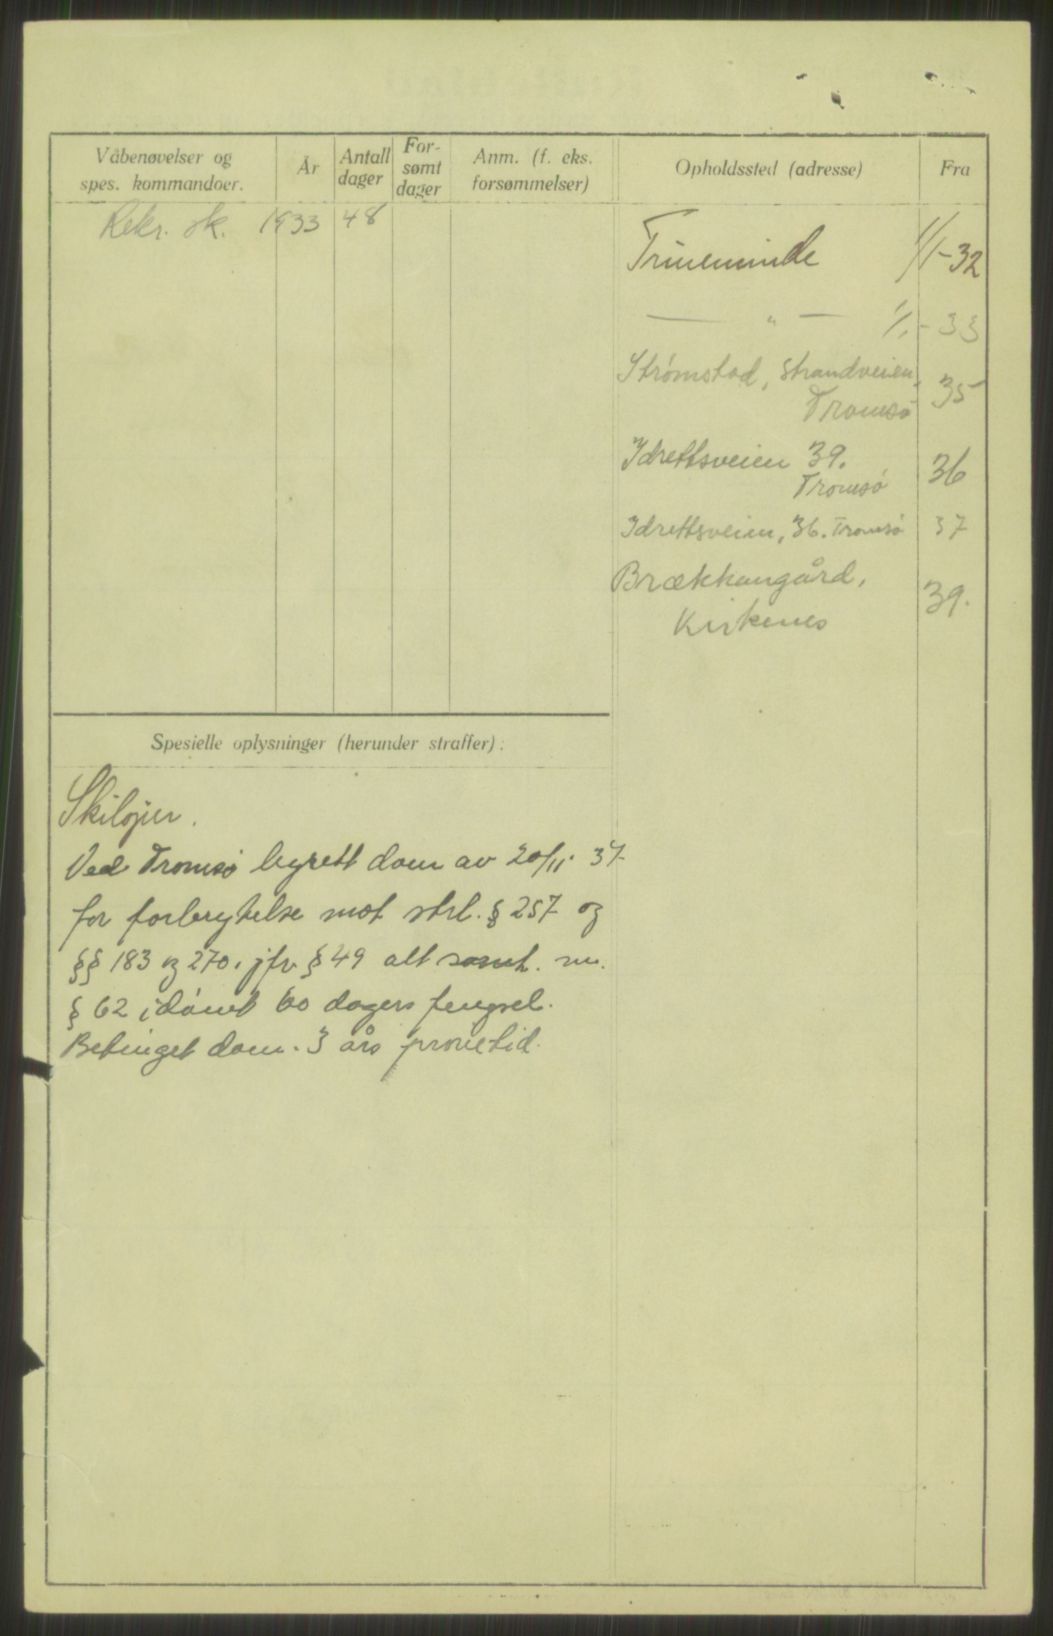 Våbenøvelser og
spes. kommandoer.
År
Antall
dager
For-
sømt
dager
Anm. (f. eks.
forsømmelser)
Opholdssted (adresse)
Fra
Rekr. sk. 1933 48
Trineminde 1/1-32
— " — 1/1-33
Strømstad, Strandveien,
Tromsø 35
Idrettsveien 39.
Tromsø 36
Idrettsveien, 36. Tromsø 37
Brækkangård,
Kirkenes 39.
Spesielle oplysninger (herunder straffer):
Skiløper.
Ved Tromsø byrett dom av 20/11 37
for forbrytelse mot strl. § 257 og
§§ 183 og 270, jfr § 49 alt samt.
§ 62 idømt 60 dagers fengsel.
Betinget dom. 3 års prøvetid.